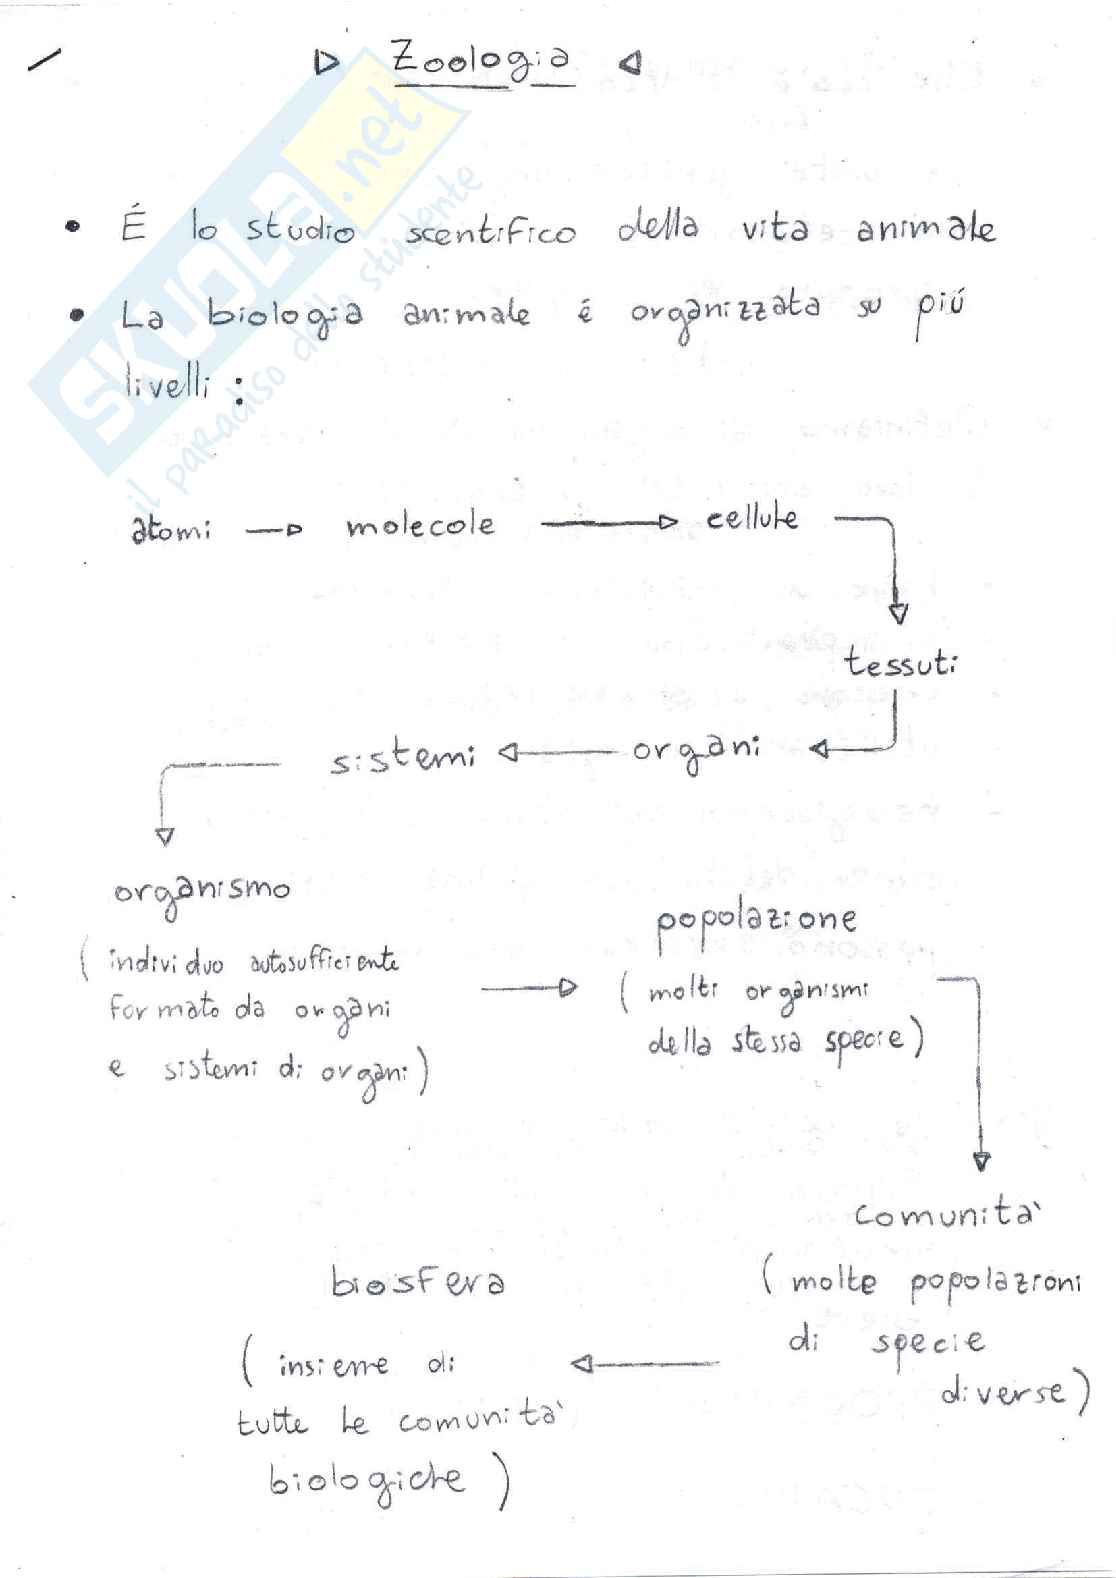 Zoologia
• É lo studio scentifico della vita animale
• La biologia animale é organizzata su piú
livelli :
atomi → molecole → cellule
tessuti
sistemi ← organi
organismo
( individuo autosufficiente
formato da organi
e sistemi di organi )
popolazione
( molti organismi
della stessa specie )
comunità
( molte popolazioni
di specie
diverse )
biosfera
( insieme di
tutte le comunità
biologiche )
SKUOLA.net
il paradiso dello studente